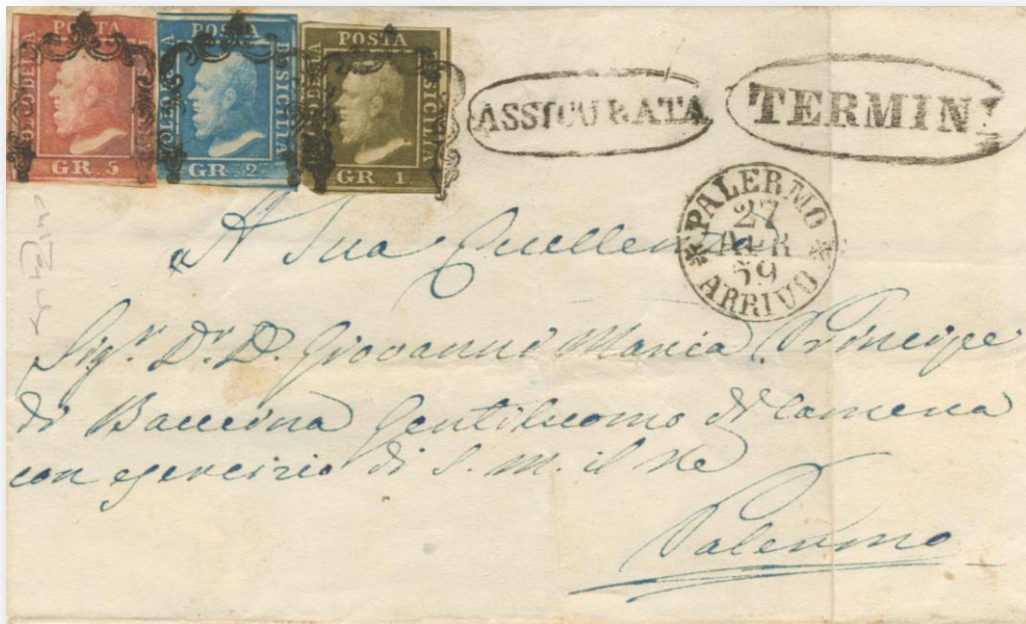 POSTA BOLLO DELLA GR 5
POSTA BOLLO DE SICILIA GR 2
POSTA BOLLO DELLA SICILIA GR 1
ASSICURATA
TERMINI
PALERMO
27
APR
59
ARRIVO
A Sua Eccellenza
Sigr. Dr. D. Giovanni Maria Principe
di Baucina Gentiluomo di Camera
con esercizio di S. M. il Re
Palermo